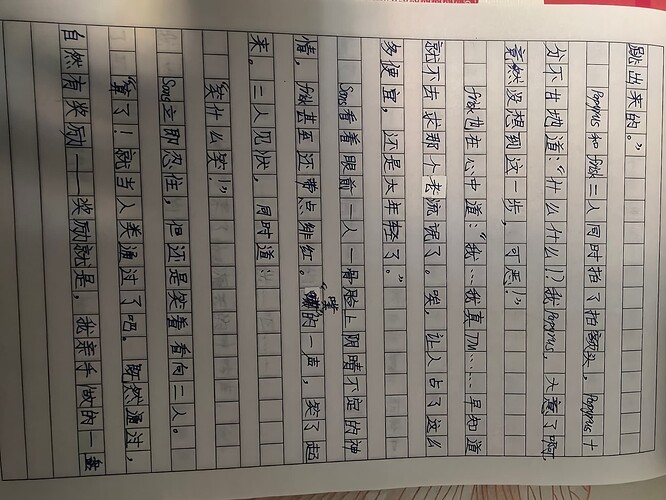 跳出来的。”
Papyrus和frisk二人同时拍了拍额头，Papyrus十
分不甘地道：“什么什么！？我Papyrus，大意了啊，
竟然没想到这一步，可恶！”
frisk也在心中道：“我…我真TM……早知道
就不去求那个老流氓了。唉，让人占了这么
多便宜，还是太年轻了。”
Sans看着眼前一人一骨脸上阴暗不定的神
情，frisk甚至还带点绯红。“噗”的一声，笑了起
来。二人见状，同时道：
“笑什么笑！”
Sans立即忍住，但还是笑着看向二人。
“算了！就当人类通过了吧。既然通过，
自然有奖励——奖励就是，我亲手做的一盘